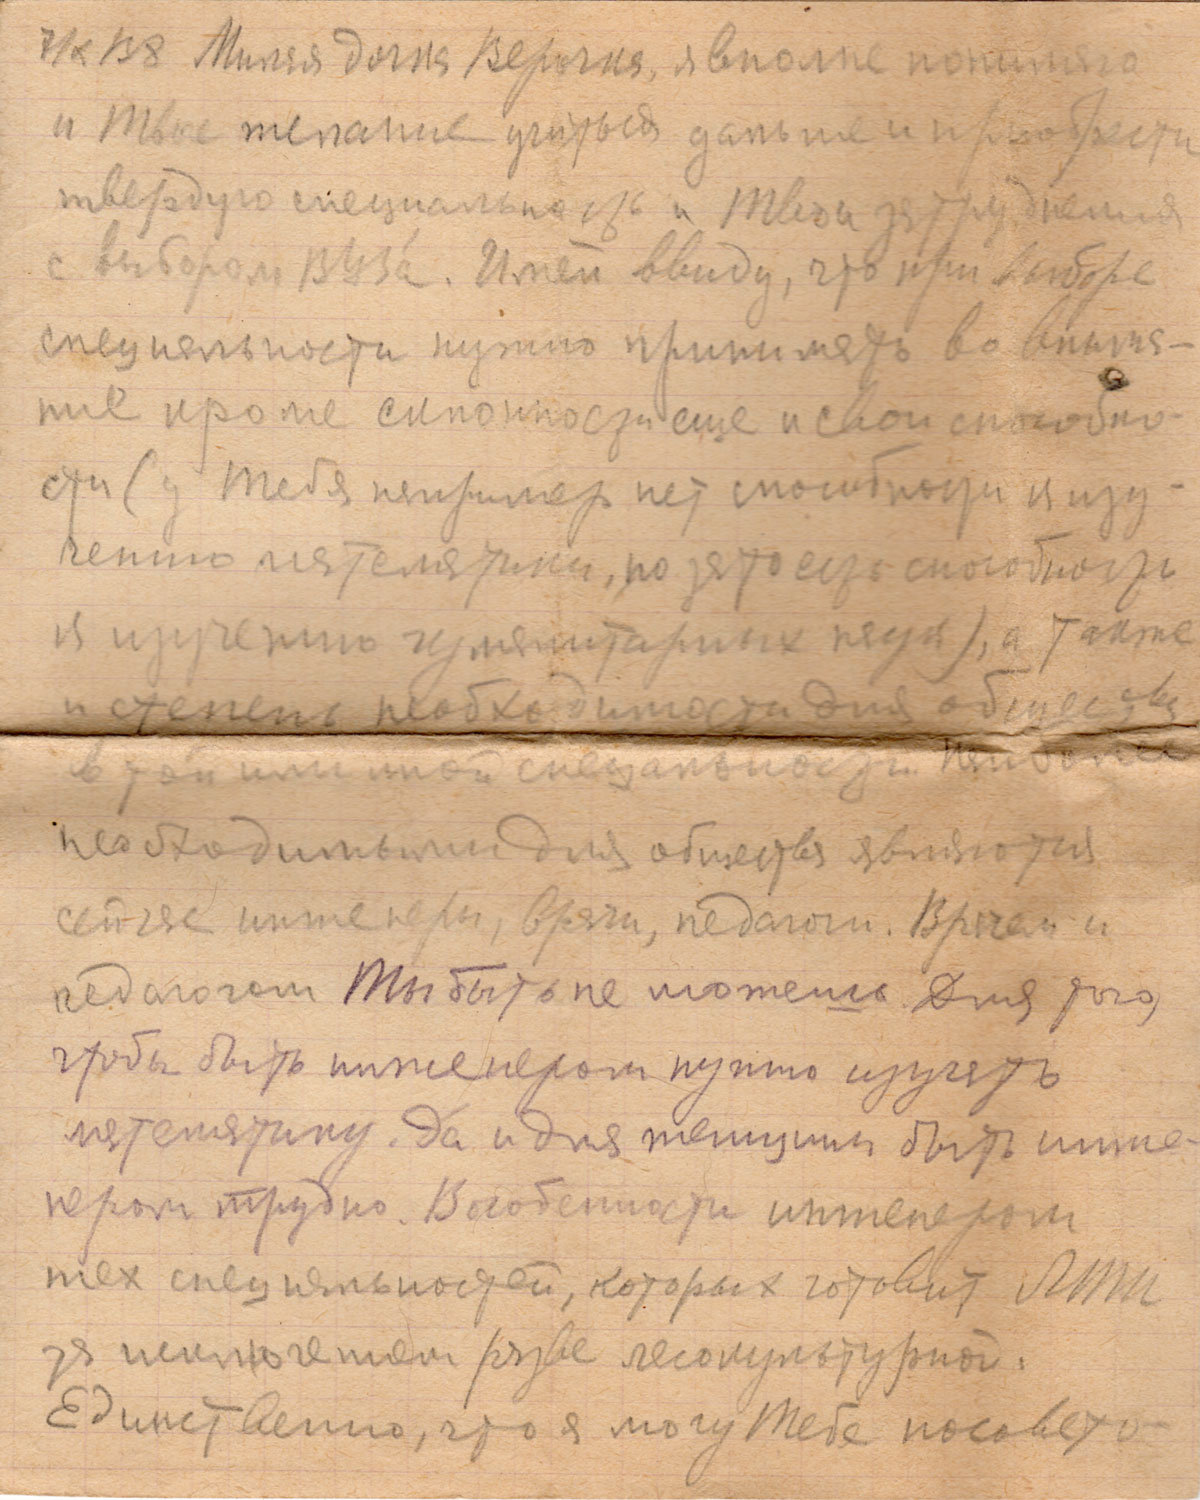 Милая дочка Верочка, я вполне понимаю
и Твое желание учиться дальше и приобрести
твердую специальность и Твои затруднения
с выбором ВУЗа. Имей ввиду, что при выборе
специальности нужно принимать во внима-
ние кроме склонности еще и свои способно-
сти (у Тебя например нет способности к изу-
чению математики, но зато есть способность
к изучению гуманитарных наук), а также
и степень необходимости для общества
в той или иной специальности. Наиболее
необходимыми для общества являются
сейчас инженеры, врачи, педагоги. Врачем и
педагогом Ты быть не можешь. Для того,
чтобы быть инженером нужно изучать
математику. Да и для женщины быть инже-
нером трудно. В особенности инженером
тех специальностей, которых готовит ЛТИ
за исключением разве лесокультурной.
Единственно, что я могу Тебе посовето-